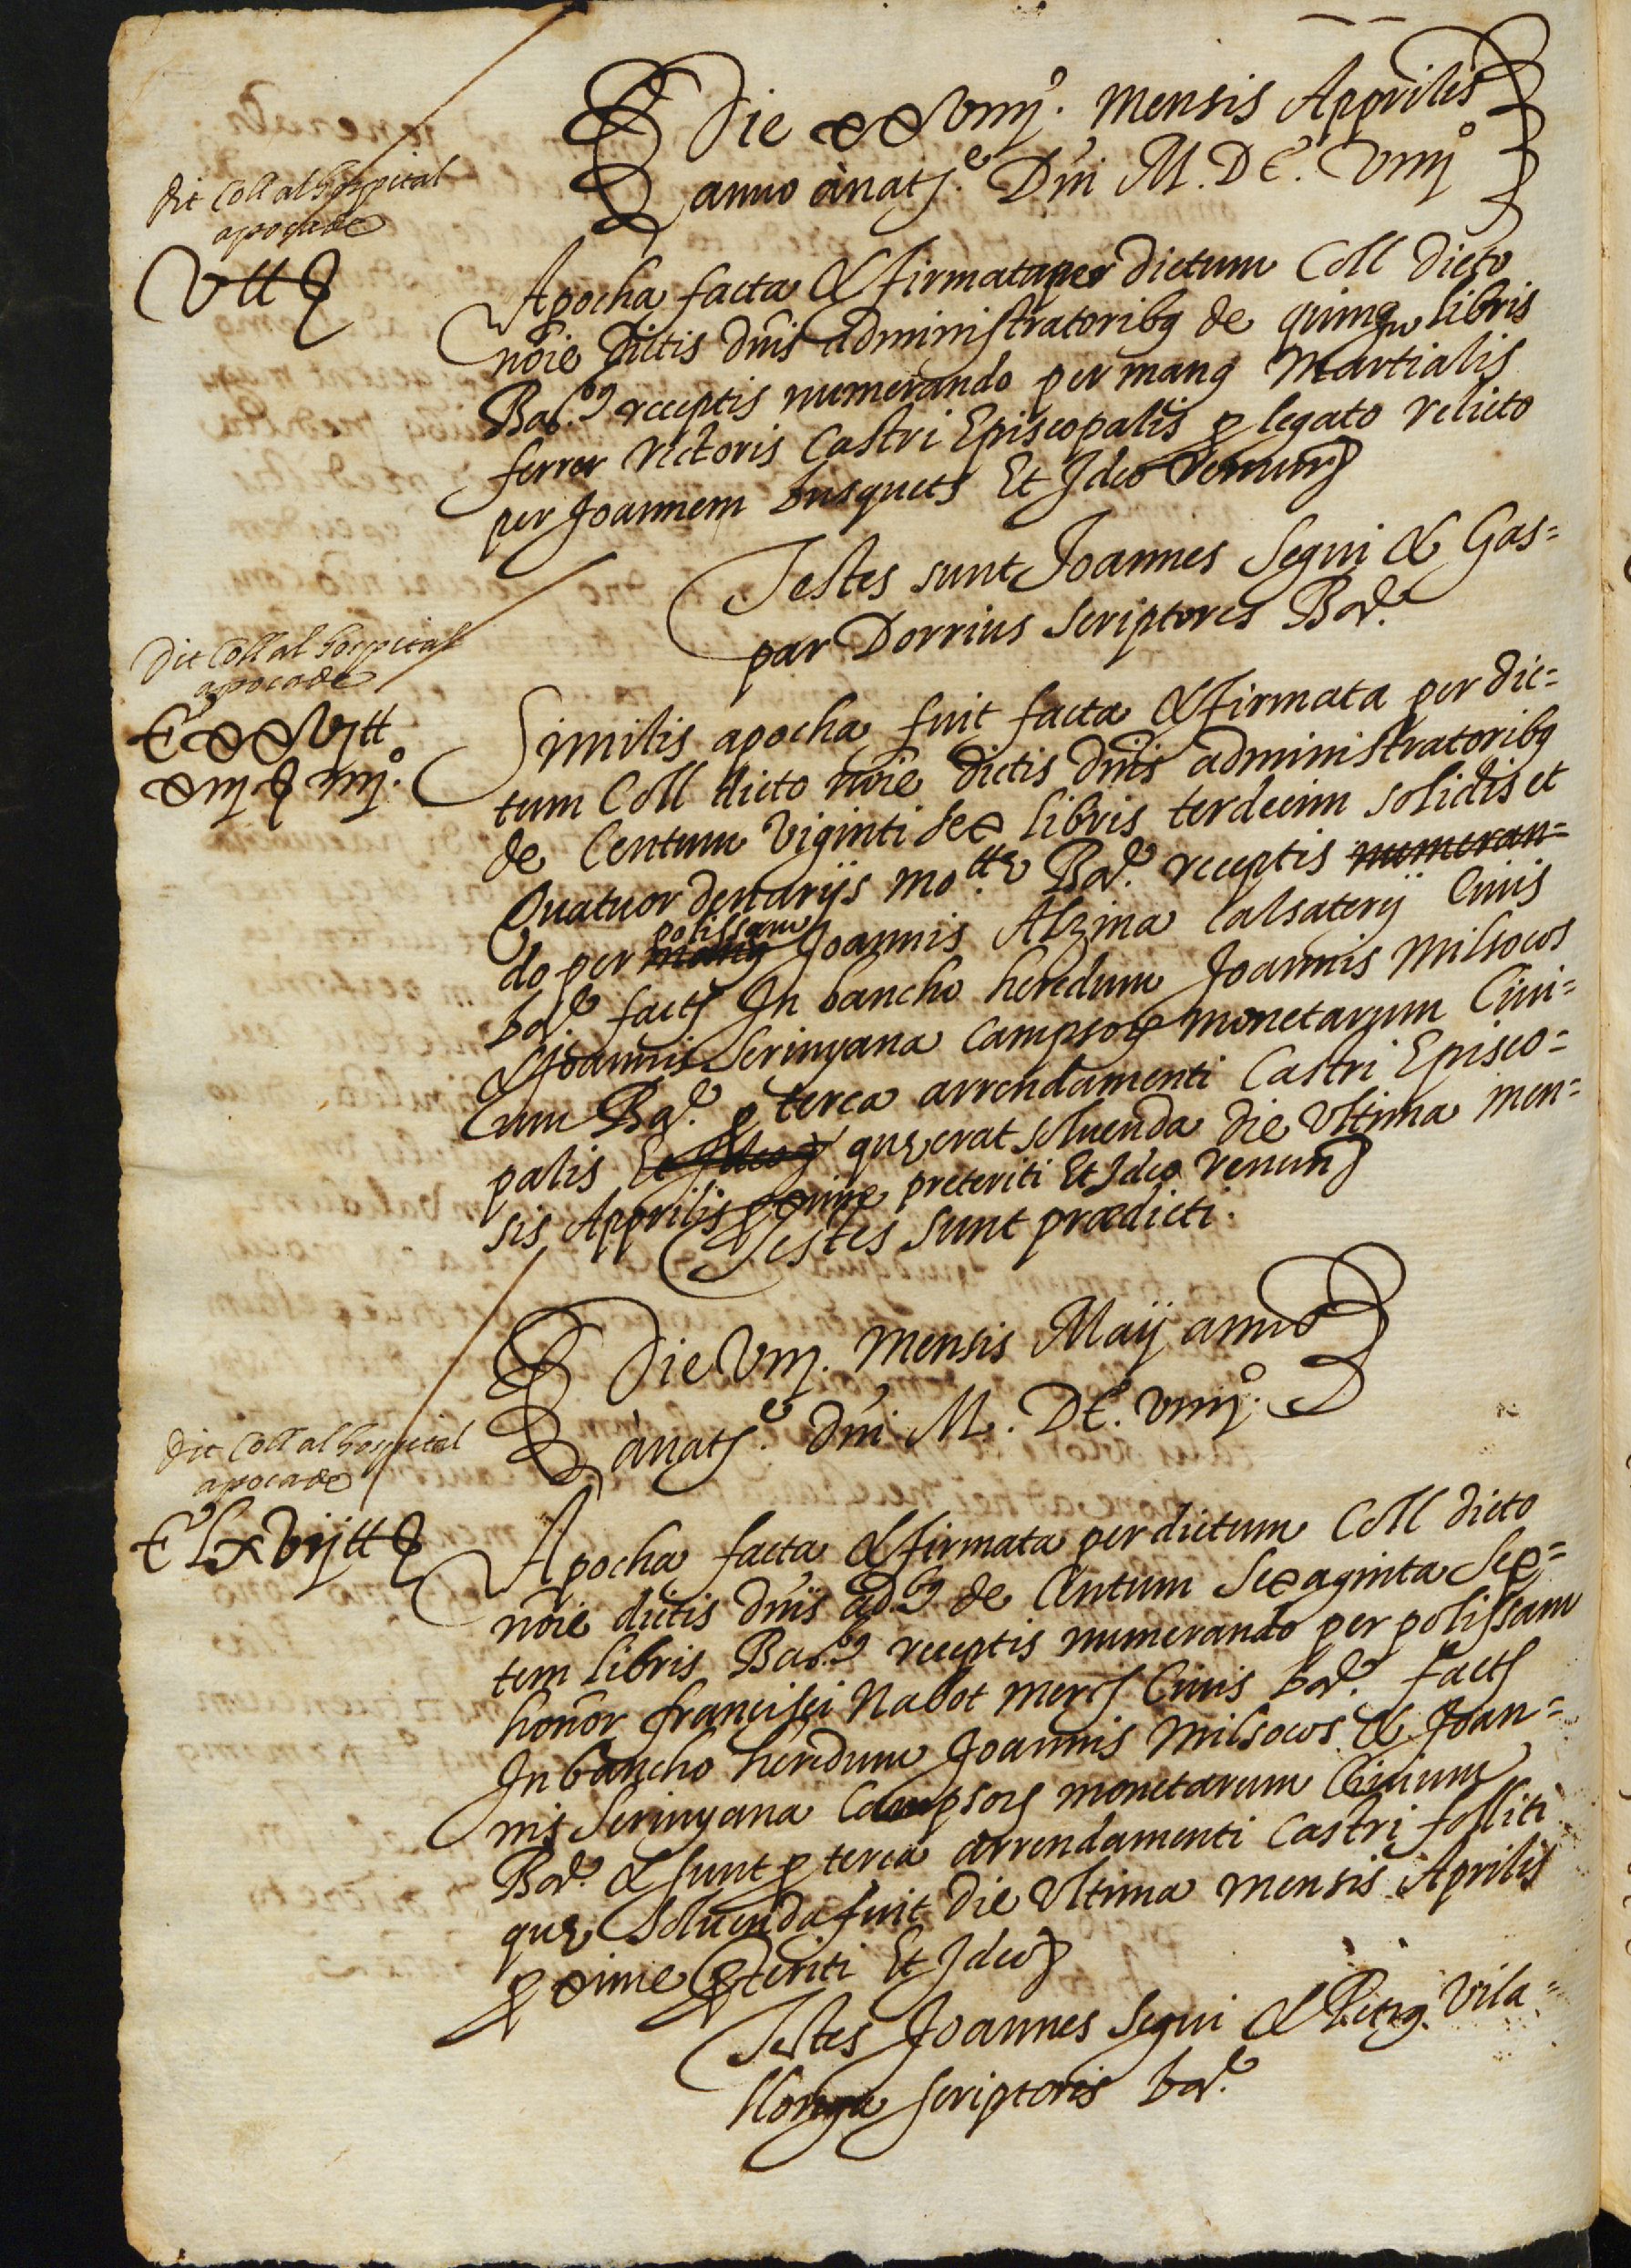 Die xxviiij. mensis Apprilis
anno ànatte. Dñi M. DC. viiijº
dit Coll al hospital
apoca de
V ll ß
Apocha facta & firmata per dictum Coll dicto
nõie dictis dñis administratoribq de quinqu libris
Bar.bq receptis numerando per manq Martialis
ferrer rectoris Castri Episcopalis p legato relicto
per Joannem busquets Et Ideo renun
Testes sunt Joannes Segui & Gas=
par Dorrius scriptores Bar.e
dit Coll al hospital
apoca de
Cxxvj ll
xiij ß iiijº.
Similis apocha fuit facta & firmata per dic=
tum Coll dicto nõie dictis dñis administratoribq
de Centum viginti sex libris terdecim solidis et
Quatuor denarijs mo.tte Bar.e receptis numeran=
do per manq polissam Joannis Alzina Calsaterij Civis
bar.e fact In bancho heredum Joannis Milsocos
& Joannis Serinyana Campsor monetarum Civi=
um Bar.e p terca arrendamenti Castri Episco=
palis Et Ideo que erat soluenda die Vltima men=
sis Apprilis pxime preteriti Et Ideo renun
Testes sunt prædicti.
Die viij. mensis Maij anno
ànatte. dñi M. DC. viiijº.
dit Coll al hospital
apoca de
CLxvij ll ß
Apocha facta & firmata per dictum Coll dicto
nõie dictis dñis ad.bq de Centum Sexaginta Sep=
tem libris Bar.bq receptis numerando per polissam
honor francisci Nabot mer Civis bar.e fact
In bancho heredum Joannis Milsocos & Joan=
nis Serinyana Campsor monetarum Civium
Bar.e & sunt p terca arrendamenti Castri folliti
que soluenda fuit die Vltima mensis Aprilis
pxime pteriti Et Ideo
Testes Joannes Segui & Petrq Vila=
llonga scriptoris bar.e